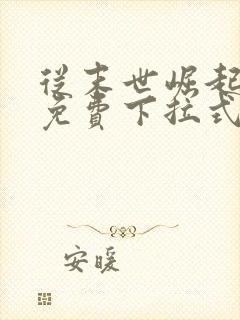 從末世崛起
免費下拉式
安暖